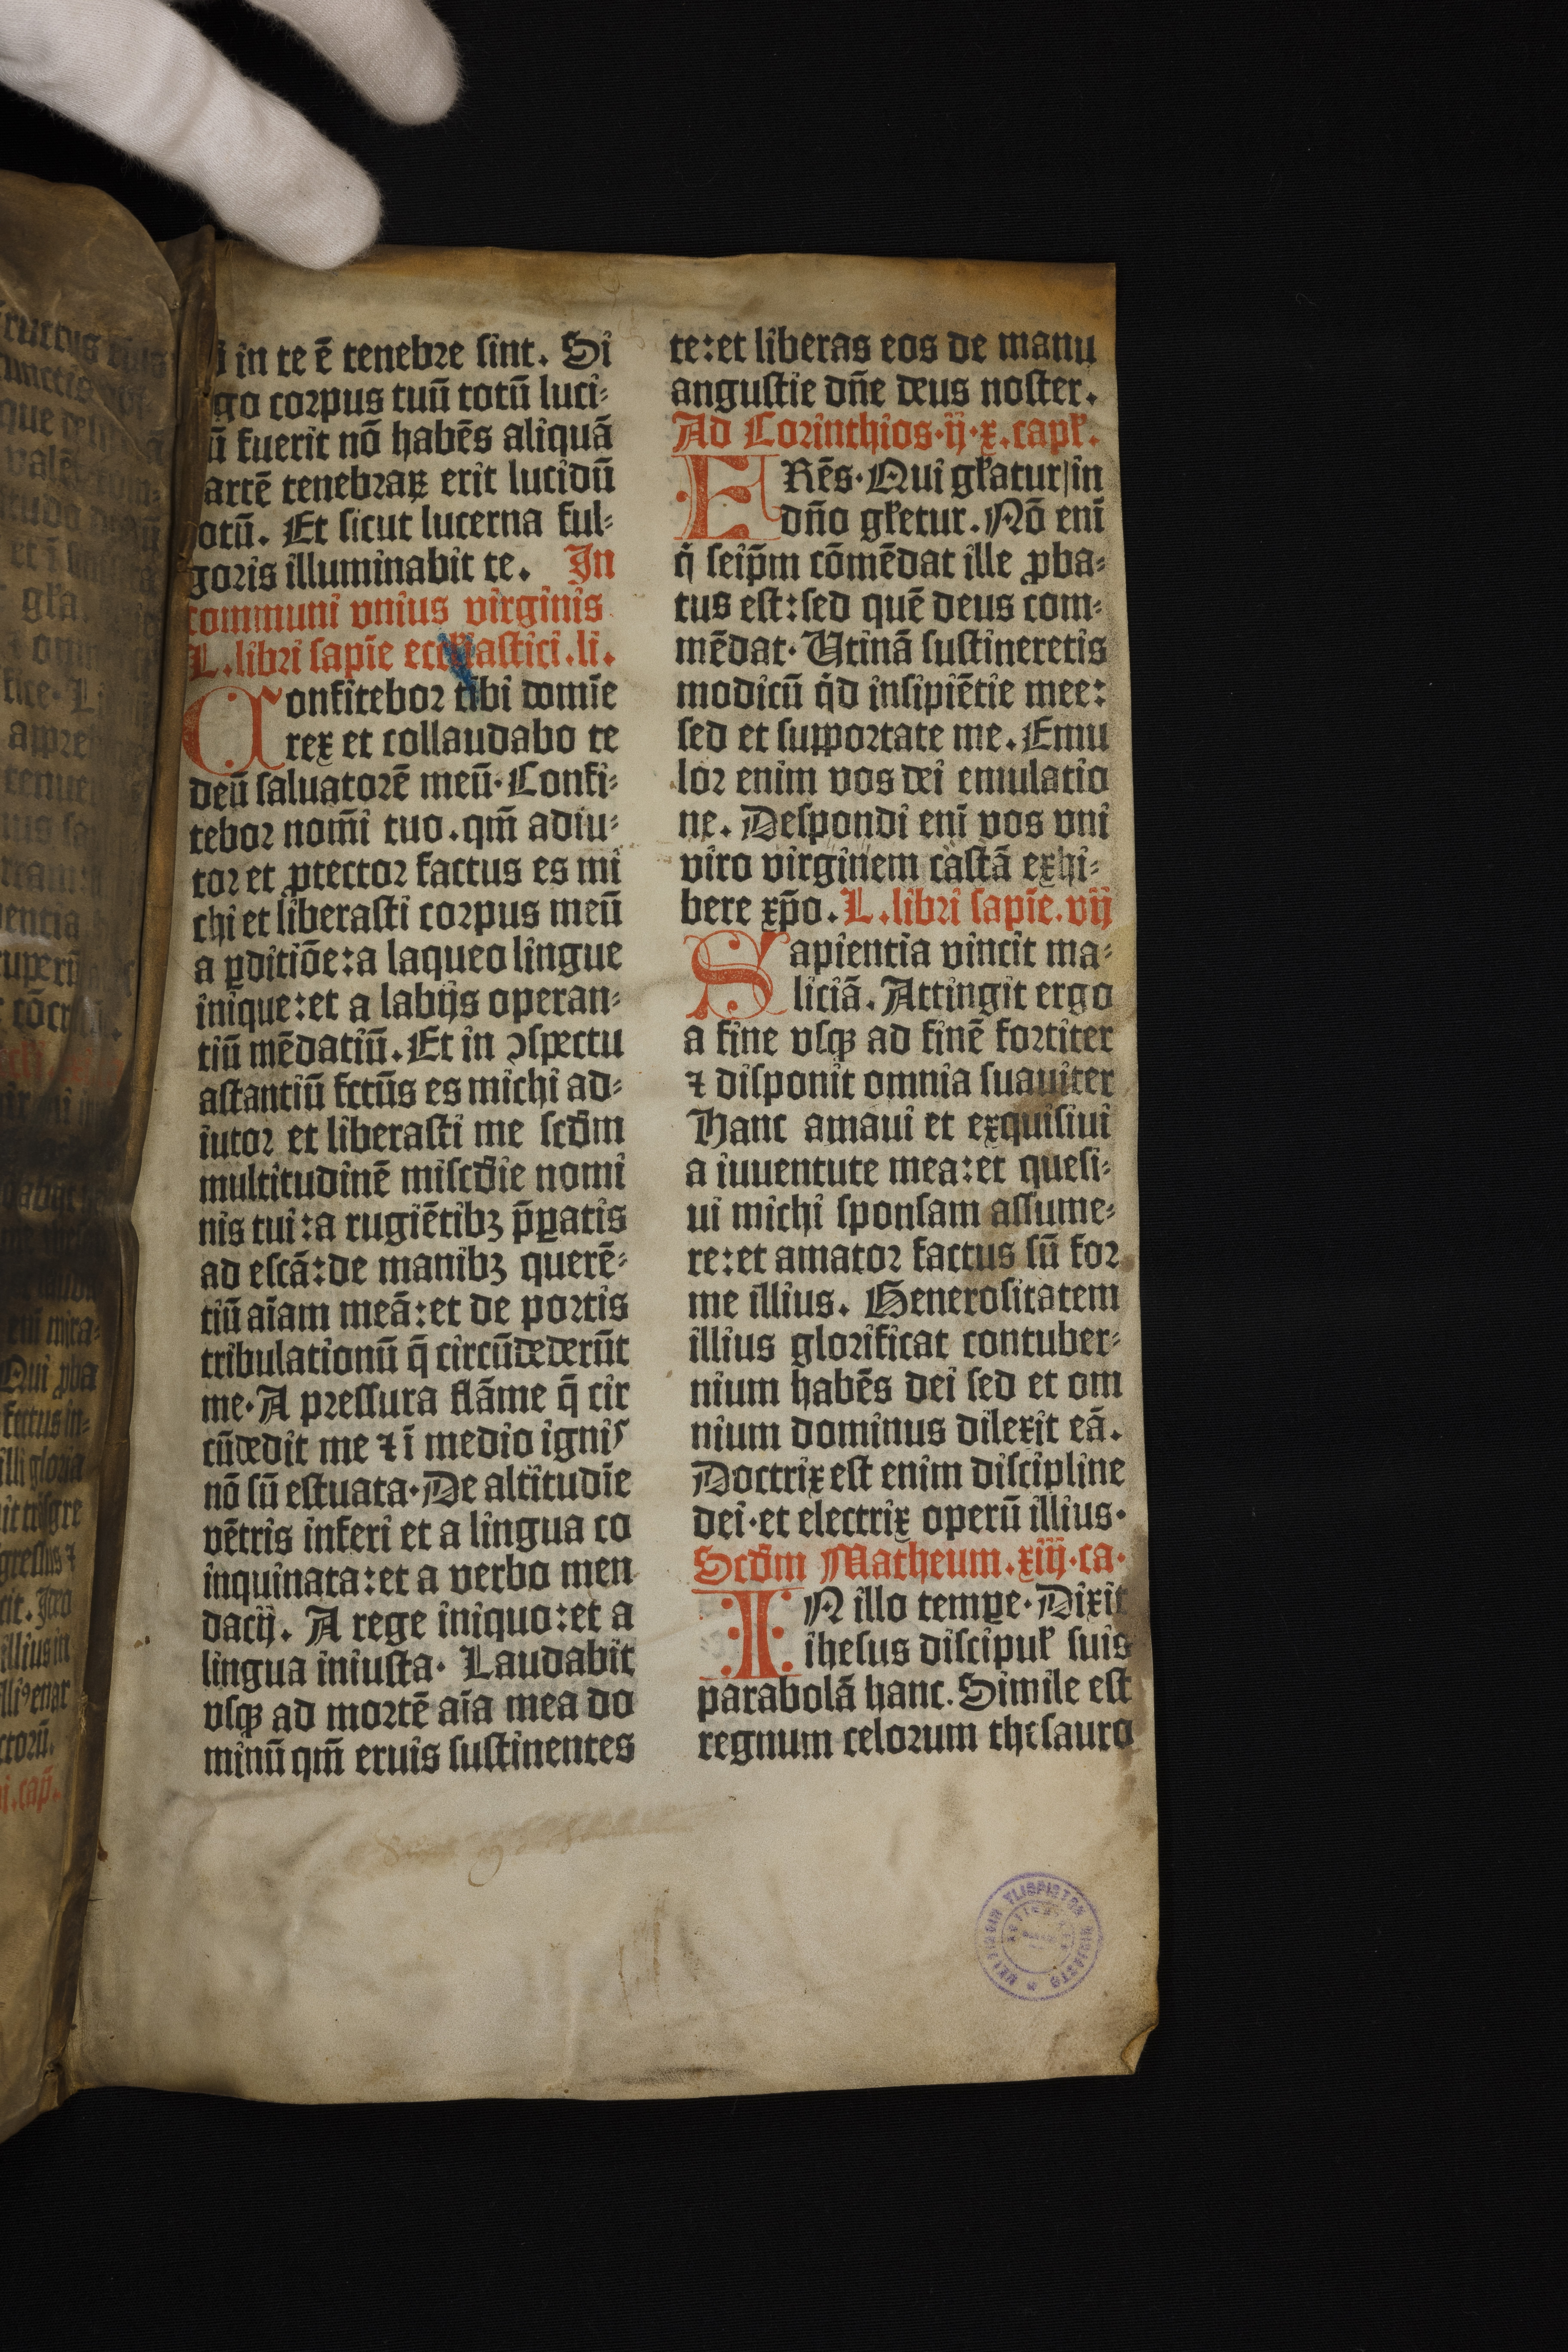 in te ē tenebre sint. Si
go corpus tuū totū luci-
ū fuerit nō habēs aliquā
artē tenebraꝝ erit lucidū
otū. Et sicut lucerna ful-
goris illuminabit te. In
communi vnius virginis
L. libri sapīe ecclīastici. li.
Confitebor tibi domīe
rex et collaudabo te
deū saluatorē meū. Confi-
tebor nom̄i tuo. qm̄ adiu-
tor et ꝓtector factus es mi
chi et liberasti corpus meū
a ꝑditiōe: a laqueo lingue
inique: et a labijs operan-
tiū mēdatiū. Et in ↄspectu
astantiū fctūs es michi ad-
iutor et liberasti me scd̄m
multitudinē miscd̄ie nomi
nis tui: a rugiētibꝫ p̄ꝑatis
ad escā: de manibꝫ querē-
tiū aīam meā: et de portis
tribulationū q̄ circūdederūt
me. A pressura flāme q̄ cir
cūdedit me ⁊ ī medio ignis
nō sū estuata. De altitudīe
vētris inferi et a lingua co
inquinata: et a verbo men
dacij. A rege iniquo: et a
lingua iniusta. Laudabit
vsqꝫ ad mortē aīa mea do
minū qm̄ eruis sustinentes
te: et liberas eos de manu
angustie dn̄e deus noster.
Ad Corinthios. ij. x. capł.
ERēs. Qui głatur in
dn̄o głetur. Nō enī
q̇ seip̄m cōmēdat ille ꝓba-
tus est: sed quē deus com-
mēdat. Utinā sustineretis
modicū q̇d insipiētie mee:
sed et supportate me. Emu
lor enim vos dei emulatio
ne. Despondi enī vos vni
viro virginem castā exhi-
bere xp̄o. L. libri sapīe. vij
Sapientia vincit ma-
liciā. Attingit ergo
a fine vsqꝫ ad finē fortiter
⁊ disponit omnia suauiter
Hanc amaui et exquisiui
a iuuentute mea: et quesi-
ui michi sponsam assume-
re: et amator factus sū for
me illius. Generositatem
illius glorificat contuber-
nium habēs dei sed et om
nium dominus dilexit eā.
Doctrix est enim discipline
dei. et electrix operū illius.
Scd̄m Matheum. xiij. ca.
IN illo tempꝑe. Dixit
ihesus discipuł suis
parabolā hanc. Simile est
regnum celorum thesauro